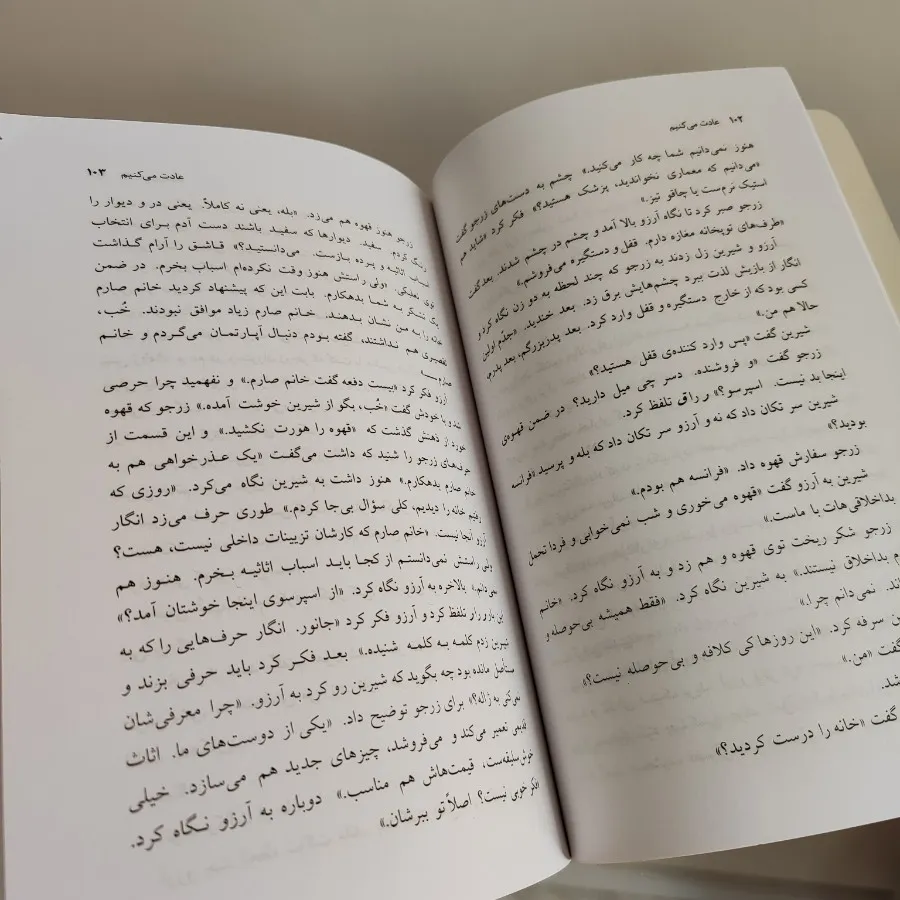 ۱۰۲ عادت می‌کنیم
هنوز نمی‌دانیم شما چه کار می‌کنید.» چشم به دست‌های زرجو گفت
«می‌دانیم که معماری نخواندید، پزشک هستید؟» فکر کرد «شاید هم
استیک نرم‌ست یا چاقو تیز.»
زرجو صبر کرد تا نگاه آرزو بالا آمد و چشم در چشم شدند. بعد گفت
«طرف‌های توپخانه مغازه دارم. قفل و دستگیره می‌فروشم.»
آرزو و شیرین زل زدند به زرجو که چند لحظه به دو زن نگاه کرد و
انگار از بازیش لذت ببرد چشم‌هایش برق زد. بعد خندید. «جدّم اولین
کسی بود که از خارج دستگیره و قفل وارد کرد. بعد پدربزرگم، بعد پدرم،
حالا هم من.»
شیرین گفت «پس وارد کننده‌ی قفل هستید؟»
زرجو گفت «و فروشنده. دسر چی میل دارید؟ در ضمن قهوه‌ی
اینجا بد نیست. اسپرسو؟» ر را‌ق تلفظ کرد.
شیرین سر تکان داد که نه و آرزو سر تکان داد که بله و پرسید «فرانسه
بودید؟»
زرجو سفارش قهوه داد. «فرانسه هم بودم.»
شیرین به آرزو گفت «قهوه می‌خوری و شب نمی‌خوابی و فردا تحمل
بداخلاقی‌هات با ماست.»
زرجو شکر ریخت توی قهوه و هم زد و به آرزو نگاه کرد. «خانم
بداخلاق نیستند.» به شیرین نگاه کرد. «فقط همیشه بی‌حوصله و
نمی‌دانم چرا.»
سرفه کرد. «این روزها کی کلافه و بی‌حوصله نیست؟»
گفت «من.»
گفت «خانه را درست کردید؟»
عادت می‌کنیم ۱۰۳
زرجو هنوز قهوه هم می‌زد. «بله، یعنی نه کاملاً. یعنی در و دیوار را
رنگ کردم. سفید. دیوارها که سفید باشند دست آدم برای انتخاب
اسباب اثاثیه و پرده بازست. می‌دانستید؟» قاشق را آرام گذاشت
توی نعلبکی. «ولی راستش هنوز وقت نکرده‌ام اسباب بخرم. در ضمن
یک تشکر به شما بدهکارم. بابت این که پیشنهاد کردید خانم صارم
خانه را به من نشان بدهند. خانم صارم زیاد موافق نبودند. خُب،
تقصیری هم نداشتند، گفته بودم دنبال آپارتمان می‌گردم و خانم
صارم ــ»
آرزو فکر کرد «بیست دفعه گفت خانم صارم.» و نفهمید چرا حرصی
شد و با خودش گفت «خُب، بگو از شیرین خوشت آمده.» زرجو که قهوه
خورد از ذهنش گذشت که «قهوه را هورت نکشید.» و این قسمت از
حرف‌های زرجو را شنید که داشت می‌گفت «یک عذرخواهی هم به
خانم صارم بدهکارم.» هنوز داشت به شیرین نگاه می‌کرد. «روزی که
رفتیم خانه را دیدیم، کلی سؤال بی‌جا کردم.» طوری حرف می‌زد انگار
آرزو آنجا نیست. «خانم صارم که کارشان تزیینات داخلی نیست، هست؟
ولی راستش نمی‌دانستم از کجا باید اسباب اثاثیه بخرم. هنوز هم
نمی‌دانم.» بالاخره به آرزو نگاه کرد. «از اسپرسوی اینجا خوشتان آمد؟»
این بار ر را ر تلفظ کرد و آرزو فکر کرد «جانور. انگار حرف‌هایی را که به
شیرین زدم کلمه به کلمه شنیده.» بعد فکر کرد باید حرفی بزند و
مستأصل مانده بود چه بگوید که شیرین رو کرد به آرزو. «چرا معرفی‌شان
نمی‌کنی به ژاله؟» برای زرجو توضیح داد. «یکی از دوست‌های ما. اثاث
قدیمی تعمیر می‌کند و می‌فروشد، چیزهای جدید هم می‌سازد. خیلی
خوش‌سلیقه‌ست، قیمت‌هاش هم مناسب.» دوباره به آرزو نگاه کرد.
«فکر خوبی نیست؟ اصلاً تو ببرشان.»